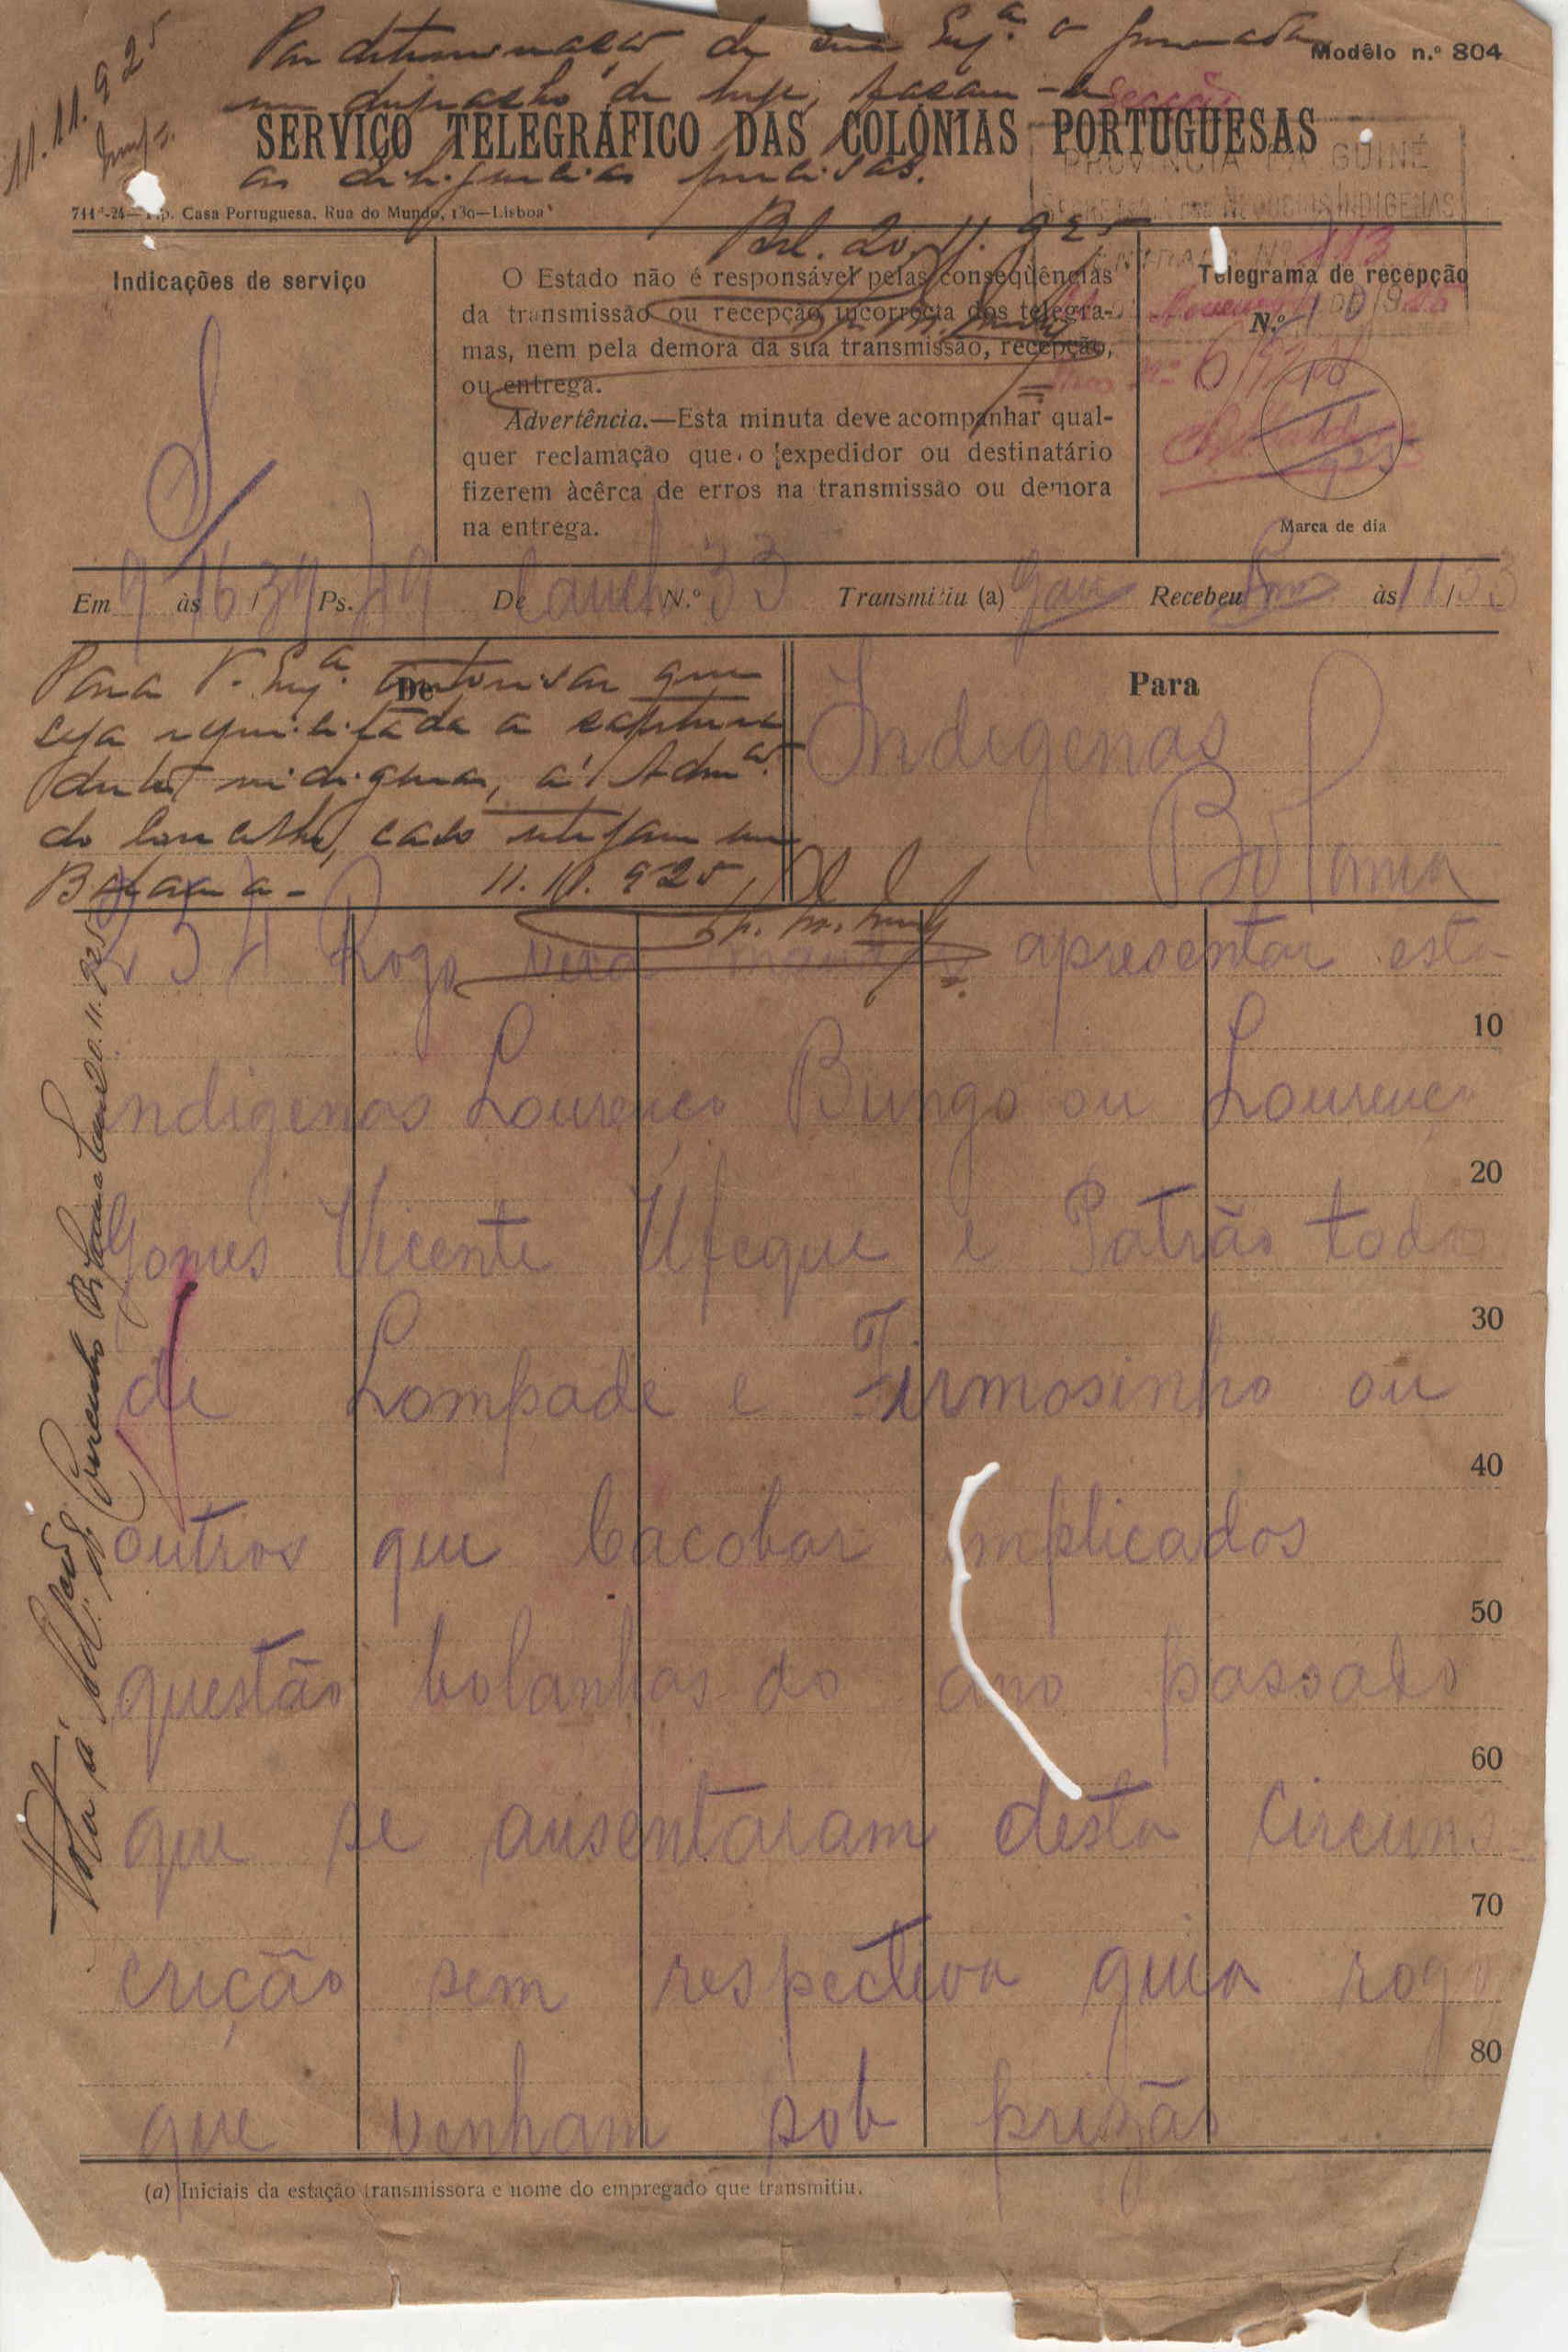 11.11.925
Por determinação de sua Exª o Governador
em despacho de hoje, façam-se
as diligencias precisas.
Bol. 20.11.925
Modêlo n.º 804
Secção
SERVIÇO TELEGRÁFICO DAS COLÓNIAS PORTUGUESAS
PROVINCIA DA GUINÉ
NEGOCIOS INDIGENAS
711ª-24—Tip. Casa Portuguesa. Rua do Mundo, 130—Lisboa
ENTRADA Nº 113
Indicações de serviço
O Estado não é responsável pelas conseqüências
da transmissão ou recepção incorrecta dos telegra-
mas, nem pela demora da sua transmissão, recepção,
ou entrega.
Advertência.—Esta minuta deve acompanhar qual-
quer reclamação que o expedidor ou destinatário
fizerem àcêrca de erros na transmissão ou demora
na entrega.
Telegrama de recepção
N.º
10
925
Marca de dia
Em 9 às 1639 / Ps. 49 De N.º 33 Transmitiu (a) Recebeu às 11/33
De
Para V. Exª. autorisar que
seja requisitada a captura
destes indigenas, á Admªº.
do Concelho, caso estejam em
Bolama-
11.11.925
Para
Indigenas
Bolama
234 Rogo vexa mandar apresentar esta
10
indigenas Lourenço Bungo ou Lourenço
20
Gomes Vicente Ufeque e Patrão todos
30
de Lompade e Firmosinho ou
40
outros que Cacobar implicados
50
questão bolanhas do ano passado
60
que se ausentaram desta circuns-
70
crição sem respectiva guia rogo
80
que venham sob prizão
(a) Iniciais da estação transmissora e nome do empregado que transmitiu.
Nota á Adm. do Concelho Bolama 20.11.925